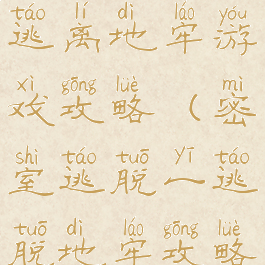 táo lí dì láo yóu
逃离地牢游
xì gōng lüè mì
戏攻略（密
shì táo tuō yī táo
室逃脱一逃
tuō dì láo gōng lüè
脱地牢攻略